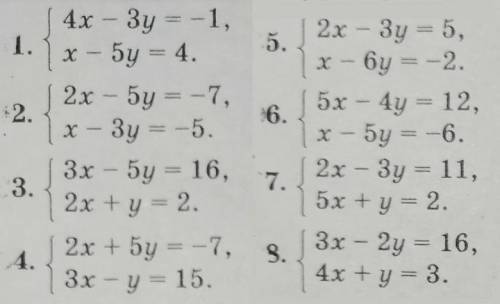 1. { 4x − 3y = −1,
x − 5y = 4.
2. { 2x − 5y = −7,
x − 3y = −5.
3. { 3x − 5y = 16,
2x + y = 2.
4. { 2x + 5y = −7,
3x − y = 15.
5. { 2x − 3y = 5,
x − 6y = −2.
6. { 5x − 4y = 12,
x − 5y = −6.
7. { 2x − 3y = 11,
5x + y = 2.
8. { 3x − 2y = 16,
4x + y = 3.